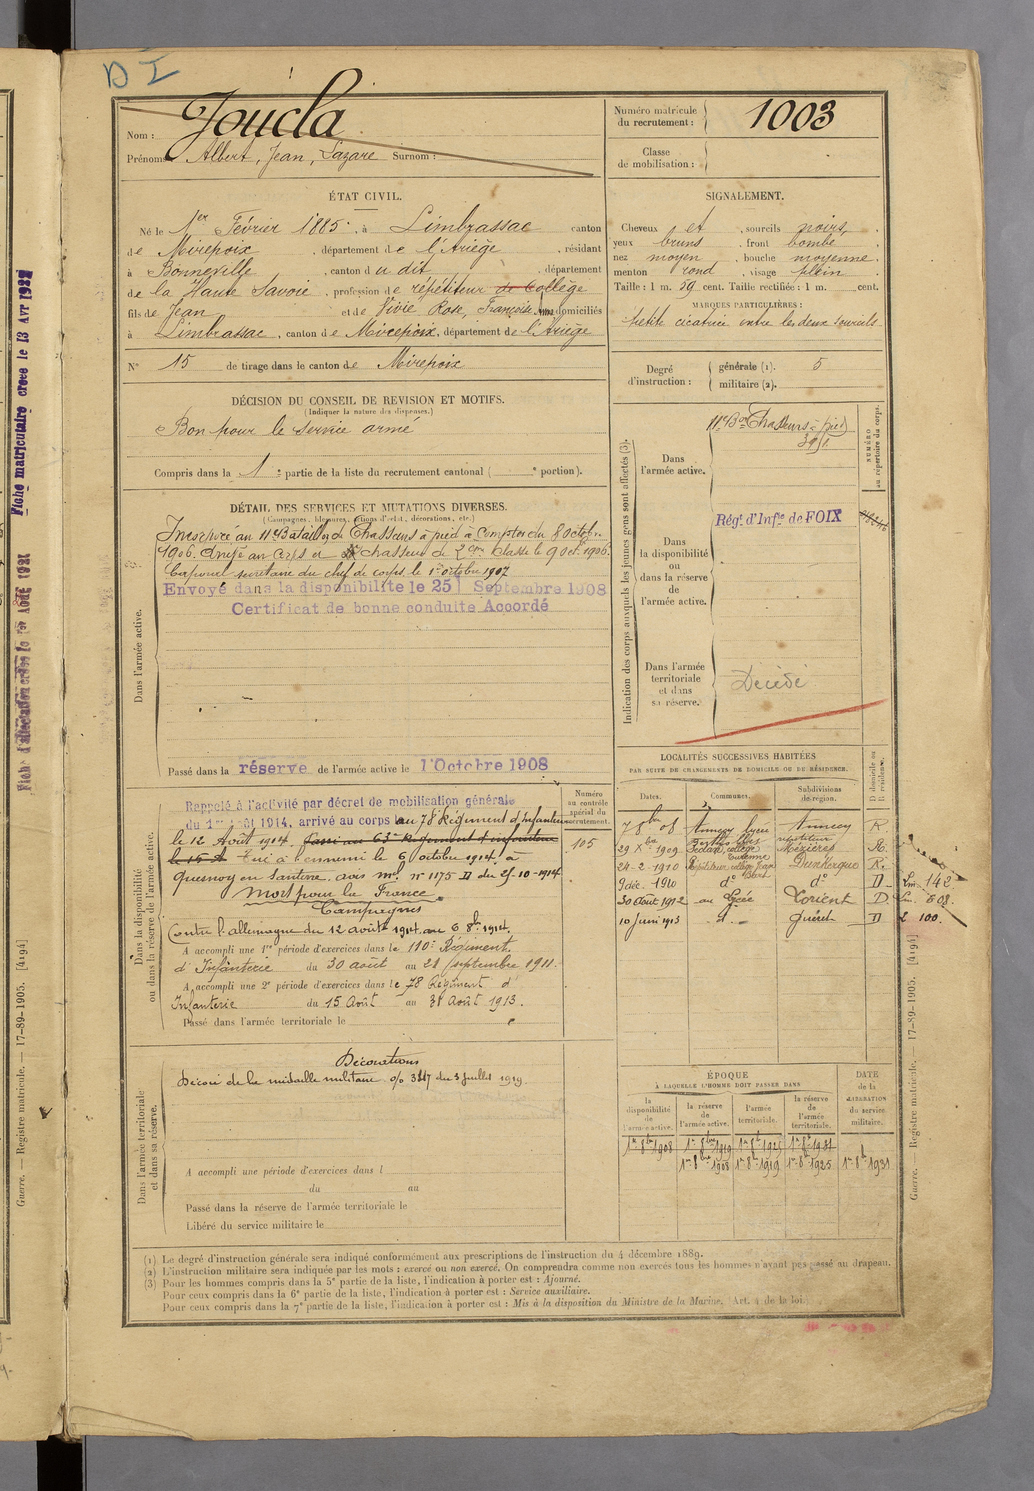 D I
Nom : Joucla
Prénoms Albert, Jean, Lazare Surnom :
Numéro matricule du recrutement : 1003
Classe de mobilisation :
ÉTAT CIVIL.
Né le 1er Février 1885, à Limbrassac canton
de Mirepoix, département de l'Ariège, résidant
à Bonneville, canton du dit, département
de la Haute Savoie, profession de répétiteur de collège
fils de Jean et de Vivie Rose, Françoise domiciliés
à Limbrassac, canton de Mirepoix, département de l'Ariège
N° 15 de tirage dans le canton de Mirepoix
SIGNALEMENT.
Cheveux et, sourcils noirs,
yeux bruns, front bombé
nez moyen, bouche moyenne.
menton rond, visage plein
Taille : 1 m. 59 cent. Taille rectifiée : 1 m. cent.
MARQUES PARTICULIÈRES :
Petite cicatrice entre les deux sourcils
Degré d'instruction : générale (1). 5
militaire (2).
DÉCISION DU CONSEIL DE REVISION ET MOTIFS.
(Indiquer la nature des dispenses.)
Bon pour le service armé
Compris dans la 1e partie de la liste du recrutement cantonal ( e portion).
DÉTAIL DES SERVICES ET MUTATIONS DIVERSES.
(Campagnes, blessures, actions d'éclat, décorations, etc.)
Dans l'armée active.
Incorporé au 11e Bataillon de Chasseurs à pied à compter du 8 octobre
1906. Arrivé au corps et chasseur de 2eme classe le 9 oct. 1906.
Caporal secrétaire du chef de corps le 1er octobre 1907
Envoyé dans la disponibilité le 25 Septembre 1908
Certificat de bonne conduite Accordé
Passé dans la réserve de l'armée active le 1 Octobre 1908
Indication des corps auxquels les jeunes gens sont affectés (3).
NUMÉRO au répertoire du corps.
Dans l'armée active.
11e Bon Chasseurs à pied
Dans la disponibilité ou dans la réserve de l'armée active.
Régt d'Infie de FOIX
Dans l'armée territoriale et dans sa réserve.
Décédé
Dans la disponibilité ou dans la réserve de l'armée active.
Numéro au contrôle spécial du recrutement.
105
Rappelé à l'activité par décret de mobilisation générale
du 1er Août 1914, arrivé au corps au 78 Régiment d'Infanterie
le 12 Août 1914. Passé au 63e Régiment d'infanterie
le 15 Tué à l'ennemi le 6 octobre 1914, à
Quesnoy en Santerre avis ml. n° 1175 D du 25-10-1914
Mort pour la France
Campagnes
Contre l'allemagne du 12 août 1914 au 6 8bre 1914.
A accompli une 1re période d'exercices dans le 110e Régiment
d'Infanterie du 30 août au 21 septembre 1911.
A accompli une 2e période d'exercices dans le 78 Régiment d'
Infanterie du 15 Août au 31 Août 1913.
Passé dans l'armée territoriale le
LOCALITÉS SUCCESSIVES HABITÉES
PAR SUITE DE CHANGEMENTS DE DOMICILE OU DE RÉSIDENCE.
Dates. Communes. Subdivisions de région. D domicile ou R résidence.
7 8bre 08 Annecy lycée Annecy R.
29 Xbre 1909 Sedan collège Mézières R.
24-2-1910 Répétiteur collège Jean Bart Dunkerque R.
9 déc. 1910 d° d° D 142
30 Août 1912 au Lycée Lorient D 608
10 Juin 1913 Guéret D 100.
Dans l'armée territoriale et dans sa réserve.
Décorations
Décoré de la médaille militaire du 3 juillet 1919.
A accompli une période d'exercices dans l
du au
Passé dans la réserve de l'armée territoriale le
Libéré du service militaire le
ÉPOQUE
À LAQUELLE L'HOMME DOIT PASSER DANS
DATE de la LIBÉRATION du service militaire.
la disponibilité de l'armée active. la réserve de l'armée active. l'armée territoriale. la réserve de l'armée territoriale.
1er 8bre 1908 1er 8bre 1919
1er 8bre 1908 1er 8b 1919 1er 8b 1925 1er 8b 1931
(1) Le degré d'instruction générale sera indiqué conformément aux prescriptions de l'instruction du 4 décembre 1889.
(2) L'instruction militaire sera indiquée par les mots : exercé ou non exercé. On comprendra comme non exercés tous les hommes n'ayant pas passé au drapeau.
(3) Pour les hommes compris dans la 5e partie de la liste, l'indication à porter est : Ajourné.
Pour ceux compris dans la 6e partie de la liste, l'indication à porter est : Service auxiliaire.
Pour ceux compris dans la 7e partie de la liste, l'indication à porter est : Mis à la disposition du Ministre de la Marine. (Art. 4 de la loi.)
Guerre. — Registre matricule. — 17-89-1905. [4194]
Guerre. — Registre matricule. — 17-89-1905. [4194]
Fiche matriculaire créée le 13 Avr 1921